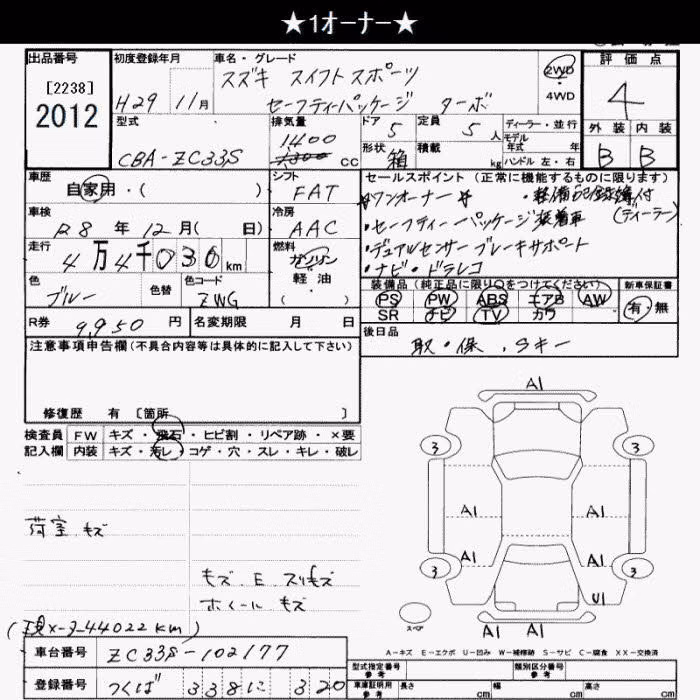 ★1オーナー★
出品番号
[2238]
2012
初度登録年月
H29 11月
車名・グレード
スズキ スイフトスポーツ
セーフティーパッケージ ターボ
2WD
4WD
評価点
4
外装 内装
B B
型式
CBA-ZC33S
排気量
1400
cc
ドア 5
定員 5人
形状 箱
積載 kg
ディーラー・並行
モデル年式 年
ハンドル 左・右
車歴
自家用・( )
シフト
FAT
車検
R8年12月( 日)
冷房
AAC
走行
4万4千030km
燃料
ガソリン
軽油
・( )
色
ブルー
色替
色コード
ZWG
R券 9,950円
名変期限 月 日
セールスポイント (正常に機能するものに限ります)
ワンオーナー ・整備記録簿付
(ディーラー)
・セーフティーパッケージ装着車
・デュアルセンサーブレーキサポート
・ナビ・ドラレコ
装備品(純正品に限り○をつけてください)
PS PW ABS エアB AW
SR ナビ TV カワ
新車保証書
有・無
後日品
取・保、Sキー
注意事項申告欄(不具合内容等は具体的に記入して下さい)
修復歴 有 〔箇所 〕
検査員記入欄
FW キズ・飛石・ヒビ割・リペア跡・×要
内装 キズ・汚レ・コゲ・穴・スレ・キレ・破レ
荷室 キズ
キズ E スリキズ
ホイール キズ
(現メータ44022km)
A1
3 3
A1 A1
A1 A1
3 3
U1
スペア
A1 A1
A=キズ E=エクボ U=凹み W=補修跡 S=サビ C=腐食 XX=交換済
車台番号 ZC33S-102177
登録番号 つくば 338に 320
型式指定番号 参考
類別区分番号 参考
車庫証明用 参考
長さ cm 幅 cm 高さ cm